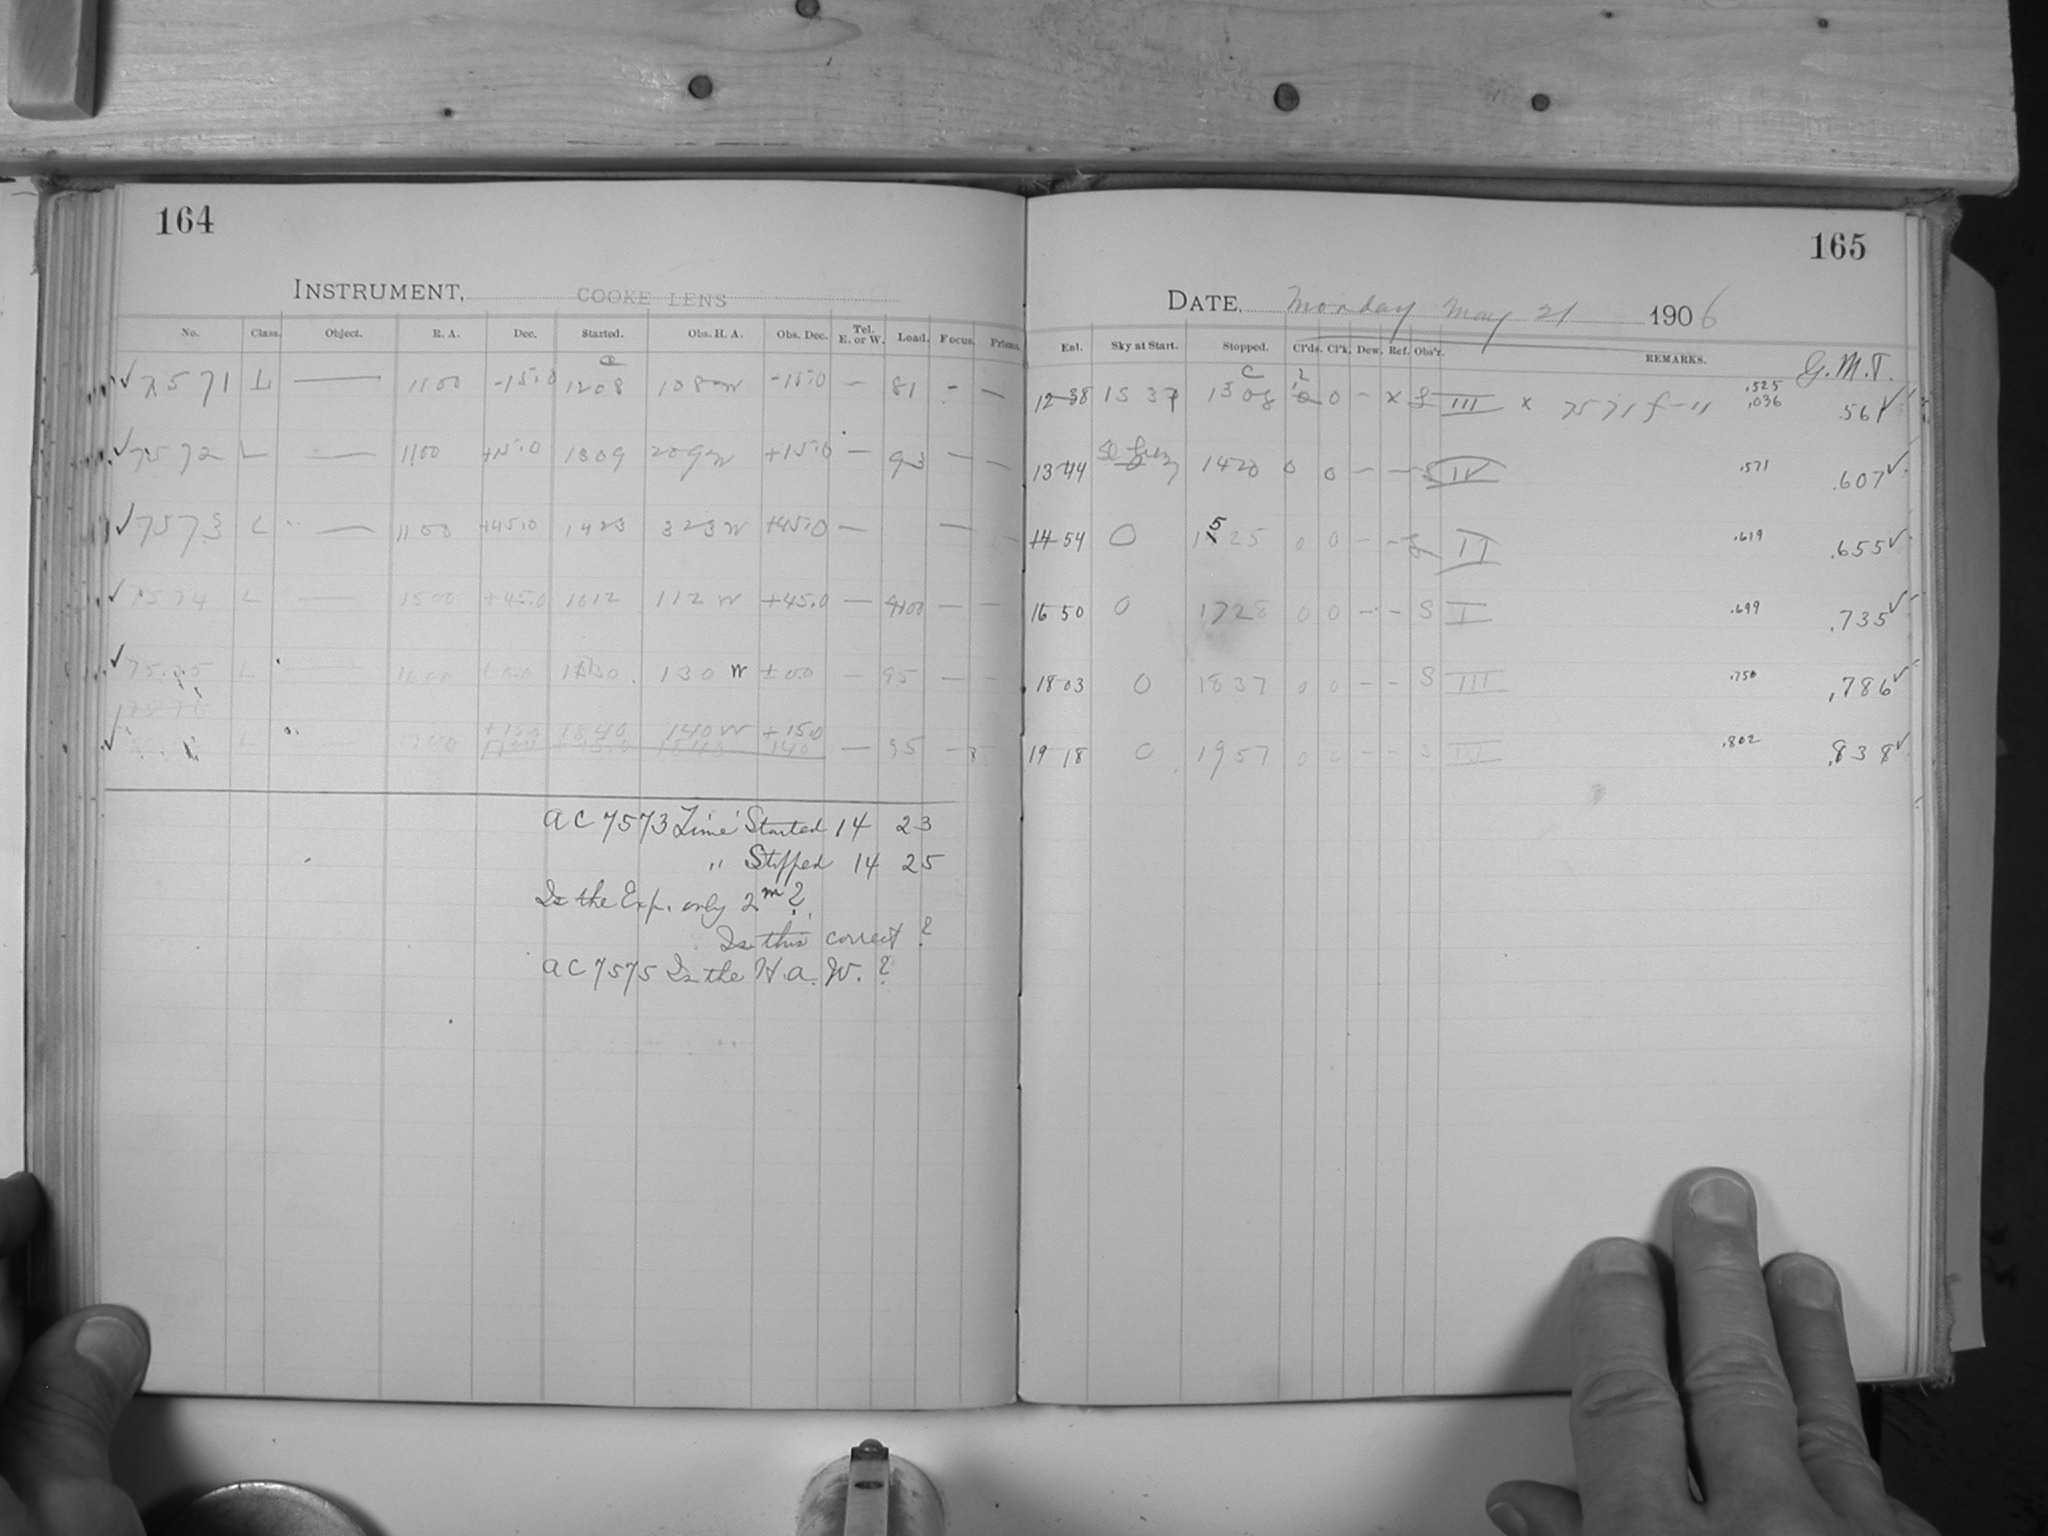 164
INSTRUMENT, COOKE LENS
No. Class. Object. R. A. Dec. Started. Obs. H. A. Obs. Dec. Tel. E. or W. Load. Focus. Prisms.
✓ 7571 L — 1100 -15.0 1208 108 W -15.0 — 81 - —
✓ 7572 L — 1100 +15.0 1309 209 W +15.0 — 93 — —
✓ 7573 L — 1100 +45.0 1423 323 W +45.0 — — —
✓ 7574 L — 1500 +45.0 1612 112 W +45.0 — — —
✓ 7575 L — 130 W — 95 — —
✓ L +15.0 1840 140 W +15.0
— 95 —
AC 7573 Time Started 14 23
" Stopped 14 25
Is the Exp. only 2m?
Is this correct?
AC 7575 Is the H. A. W.?
165
DATE, Monday May 21 1906
Ent. Sky at Start. Stopped. Cl'ds. Cl'k. Dew. Ref. Obs'r. REMARKS. G.M.T.
12 38 1308 0 — x III x 7571 f-11 .525 .036 .561 ✓
13 44 1420 0 0 — — IV .571 .607 ✓
14 54 0 1525 0 0 — — II .619 .655 ✓
16 50 0 1728 0 0 — — S I .699 .735 ✓
18 03 0 1837 0 0 — — S III .750 .786 ✓
19 18 0 1957 0 0 — — S IV .802 .838 ✓